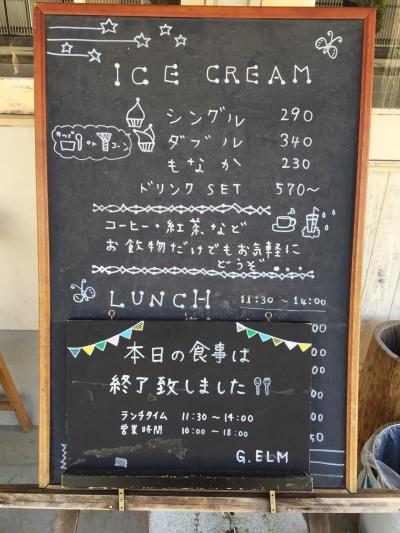 ICE CREAM
シングル 290
ダブル 340
もなか 230
ドリンク SET 570〜
カップ or コーン
コーヒー・紅茶など
お飲物だけでもお気軽に
どうぞ...
LUNCH 11:30 〜 14:00
本日の食事は
終了致しました
ランチタイム 11:30 〜 14:00
営業時間 10:00 〜 18:00
G. ELM